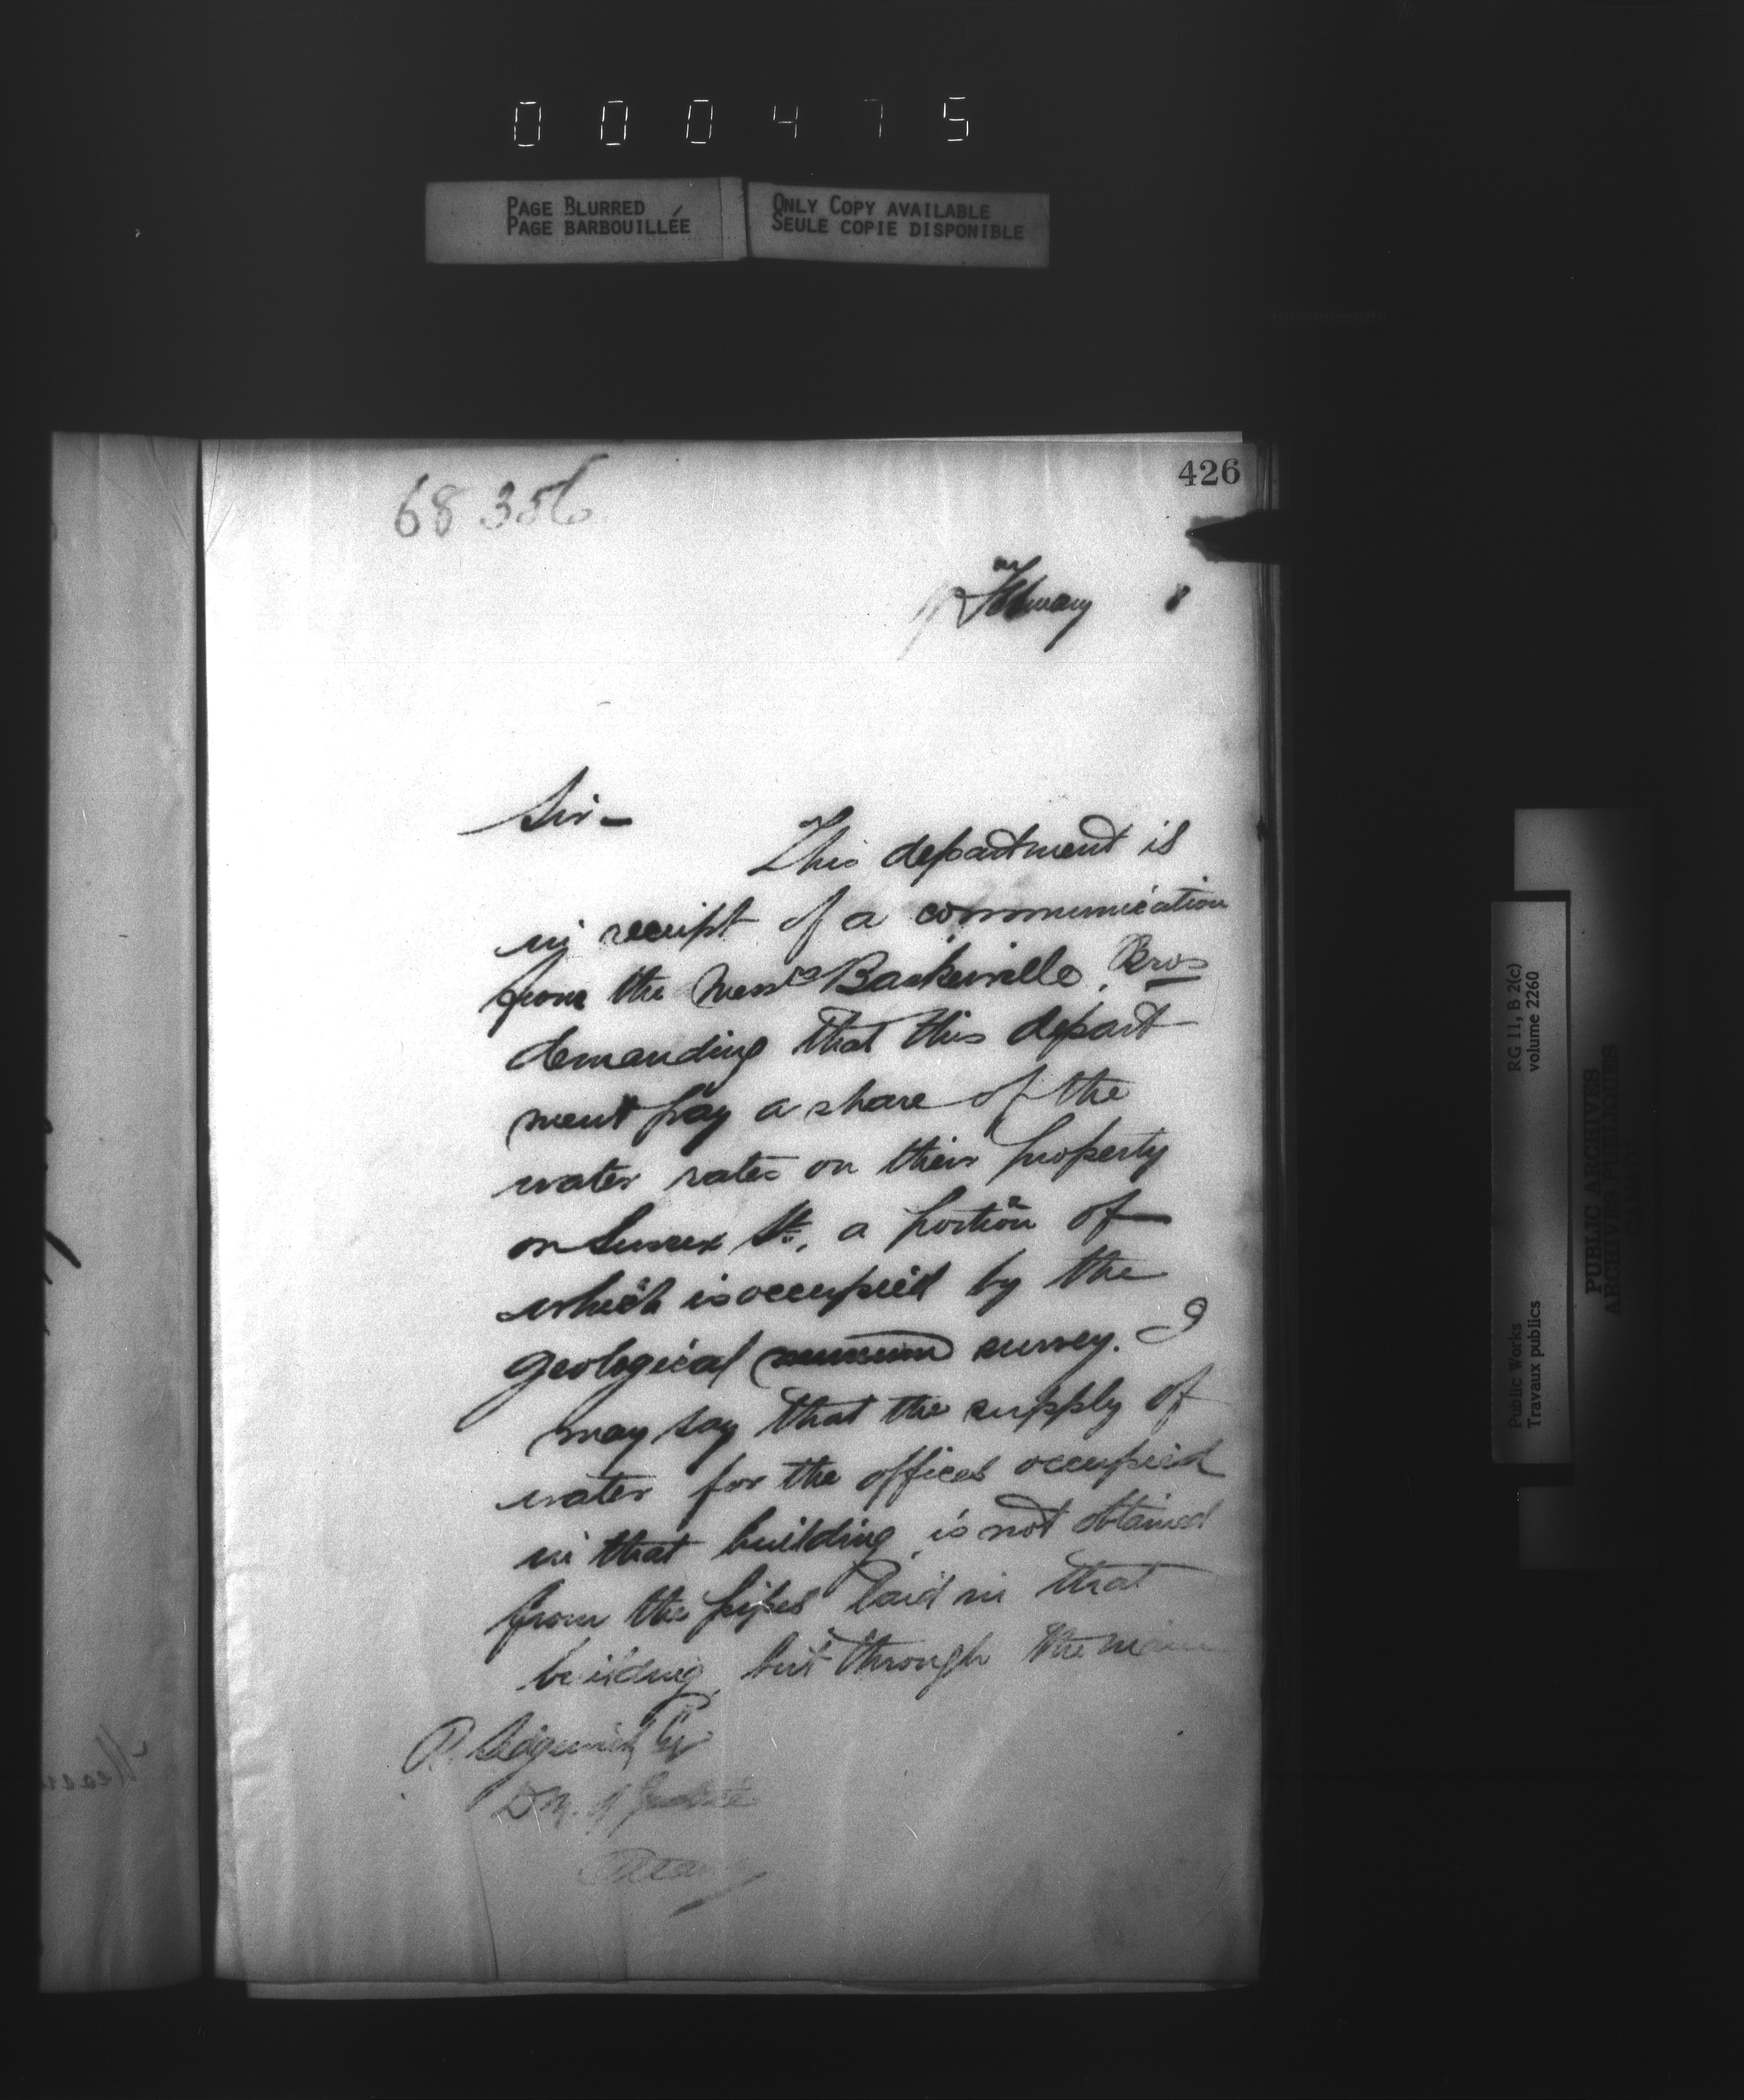 000475
PAGE BLURRED
PAGE BARBOUILLÉE
ONLY COPY AVAILABLE
SEULE COPIE DISPONIBLE
426
68356
February 8
Sir-
This department is
in receipt of a communication
from the Messrs Baskerville, Bros
demanding that this depart
ment pay a share of the
water rates on their property
on Sussex St., a portion of
which is occupied by the
geological museum survey. I
may say that the supply of
water for the offices occupied
in that building is not obtained
from the pipes laid in that
building, but through the main
D.M. of Justice
Ottawa
RG 11, B 2(c)
volume 2260
Public Works
Travaux publics
PUBLIC ARCHIVES
ARCHIVES PUBLIQUES